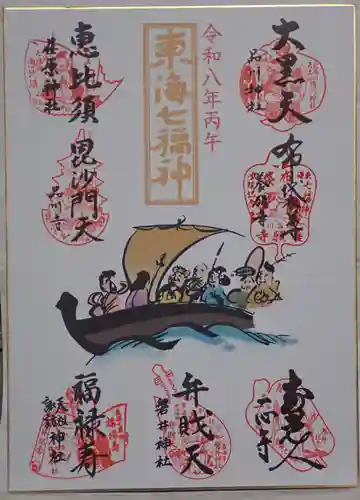 東海七福神
令和八年丙午
大黒天
品川神社
布袋尊
養願寺
寿老人
一心寺
恵比須
荏原神社
毘沙門天
品川寺
福禄寿
天祖
諏訪神社
弁財天
磐井神社